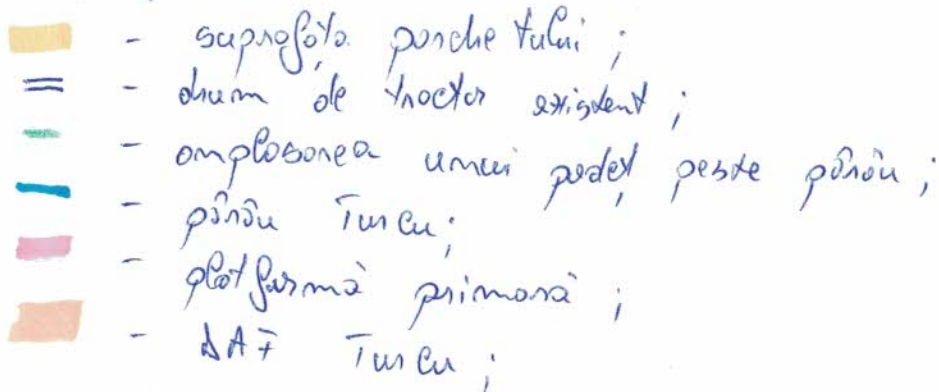 - suprafața parchetului ;
- drum de tractor existent ;
- amplasarea unui podeț peste pârâu ;
- pârâu Turcu ;
- platformă primară ;
- DAF Turcu ;